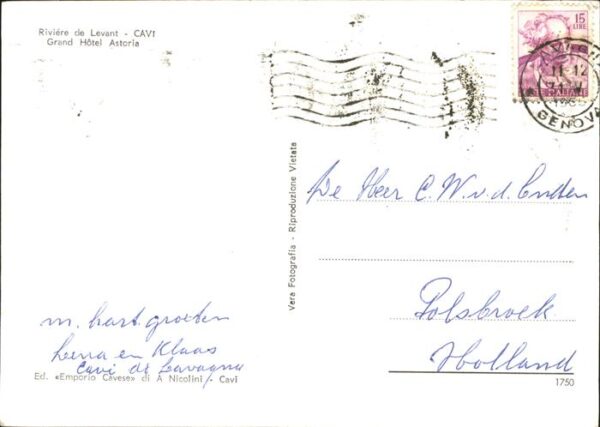 Rivière de Levant - CAVI
Grand Hôtel Astoria
15
LIRE
11-12
GENOVA
Vera Fotografia - Riproduzione Vietata
De Heer C. W. v. d.
Polsbroek
Holland
m. hart. groeten
en Klaas
Cavi di Lavagna
Ed. «Emporio Cavese» di A Nicolini, Cavi
1750